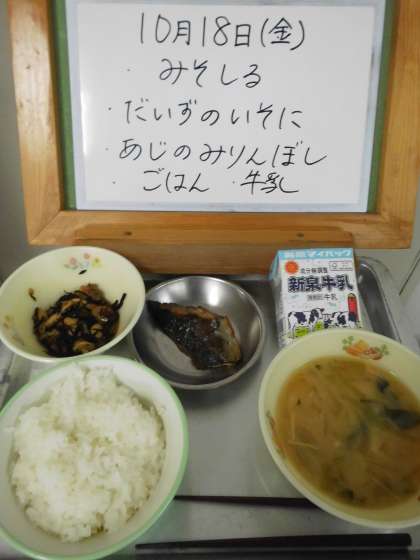 10月18日(金)
・みそしる
・だいずのいそに
・あじのみりんぼし
・ごはん ・牛乳
成分無調整
新泉牛乳
牛乳